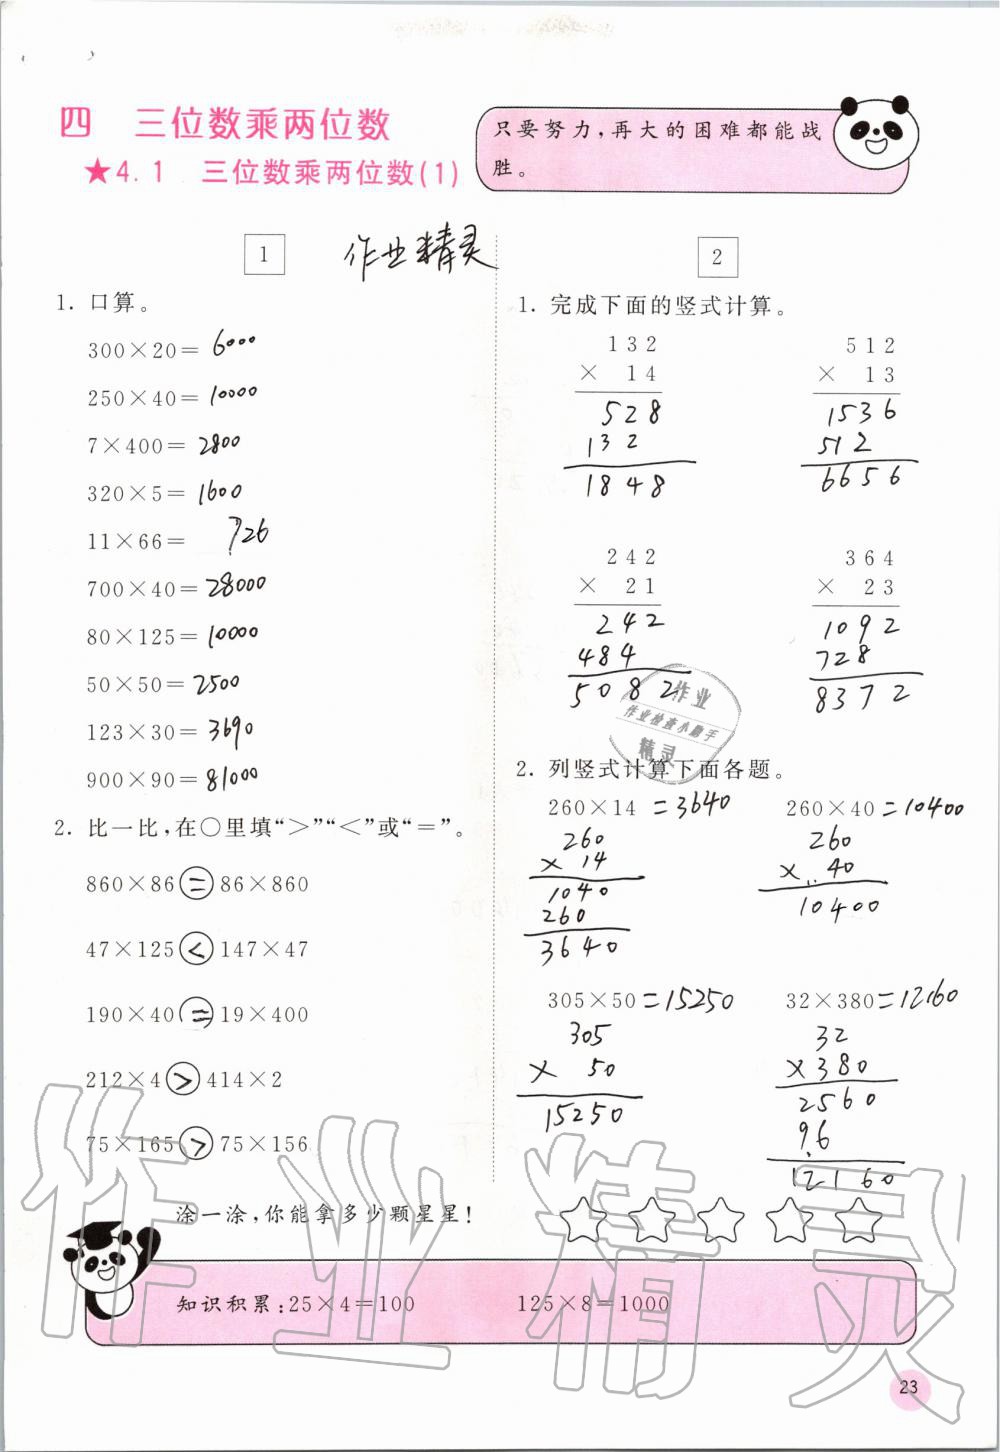 四 三位数乘两位数
★4.1 三位数乘两位数(1)
只要努力,再大的困难都能战
胜。
1
作业精灵
1. 口算。
300×20= 6000
250×40= 10000
7×400= 2800
320×5= 1600
11×66= 726
700×40= 28000
80×125= 10000
50×50= 2500
123×30= 3690
900×90= 81000
2. 比一比,在○里填“>”“<”或“=”。
860×86 = 86×860
47×125 < 147×47
190×40 = 19×400
212×4 > 414×2
75×165 > 75×156
2
1. 完成下面的竖式计算。
132
× 14
528
132
1848
512
× 13
1536
512
6656
242
× 21
242
484
5082
364
× 23
1092
728
8372
作业
作业检查小助手
精灵
2. 列竖式计算下面各题。
260×14 =3640
260
× 14
1040
260
3640
260×40 =10400
260
× 40
10400
305×50 =15250
305
× 50
15250
32×380 =12160
32
×380
2560
96
12160
涂一涂,你能拿多少颗星星!
知识积累:25×4=100 125×8=1000
23
作业精灵